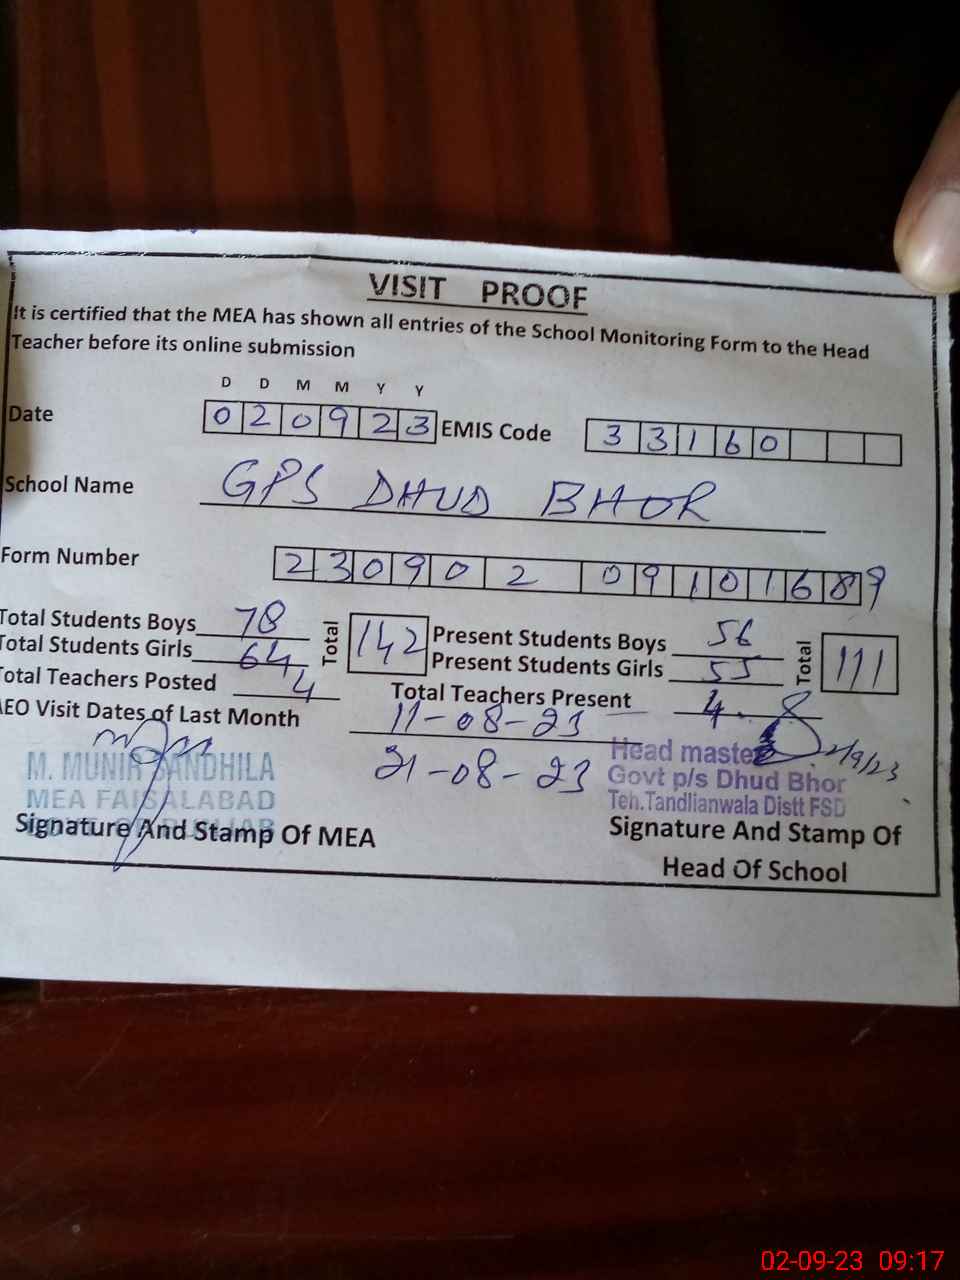 VISIT PROOF
It is certified that the MEA has shown all entries of the School Monitoring Form to the Head
Teacher before its online submission
D D M M Y Y
Date 0 2 0 9 2 3 EMIS Code 3 3 1 6 0
School Name GPS DHUD BHOR
Form Number 2 3 0 9 0 2 0 9 1 0 1 6 8 9
Total Students Boys 78 Total 142 Present Students Boys 56 Total 111
Total Students Girls 64 Present Students Girls 55
Total Teachers Posted 4 Total Teachers Present 4
AEO Visit Dates of Last Month 11-08-23
21-08-23
2/9/23
M. MUNIR SANDHILA
MEA FAISALABAD
Signature And Stamp Of MEA
Head master
Govt p/s Dhud Bhor
Teh.Tandlianwala Distt FSD
Signature And Stamp Of
Head Of School
02-09-23 09:17